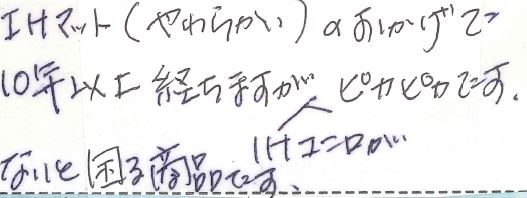 IHマット(やわらかい)のおかげで
10年以上経ちますが IHコンロが ピカピカです。
ないと困る商品です。